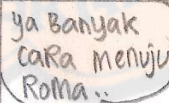 ya BanyaK
CaRa menuju
Roma..